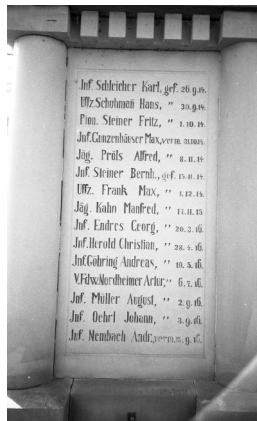 Inf. Schleicher Karl, gef. 26.9.14.
Uffz. Schuhmañ Hans, " 30.9.14.
Pion. Steiner Fritz, " 1.10.14.
Inf. Gunzenhäuser Max, verm. 31.10.14.
Jäg. Pröls Alfred, " 8.11.14
Inf. Steiner Bernh., gef. 15.11.14.
Uffz. Frank Max, " 1.12.14.
Jäg. Kahn Manfred, " 17.11.15
Inf. Endres Georg, " 20.3.16.
Inf. Herold Christian, " 28.4.16.
Inf. Göhring Andreas, " 10.5.16.
V.Fdw. Nordheimer Artur, " 6.7.16.
Inf. Müller August, " 2.9.16.
Inf. Oehrl Johann, " 3.9.16.
Inf. Nembach Andr., verm. 9.16.